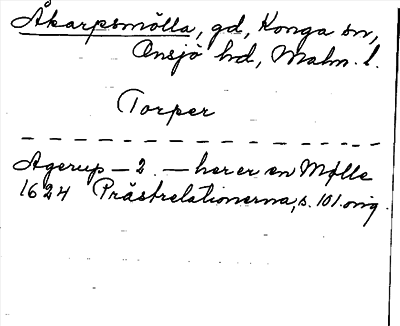 Åkarpsmölla, gd, Konga sn,
Onsjö hd, Malm. l.
Torper
Agerup – 2. – her er en Mølle
1624 Prästrelationerna, s. 101. orig.